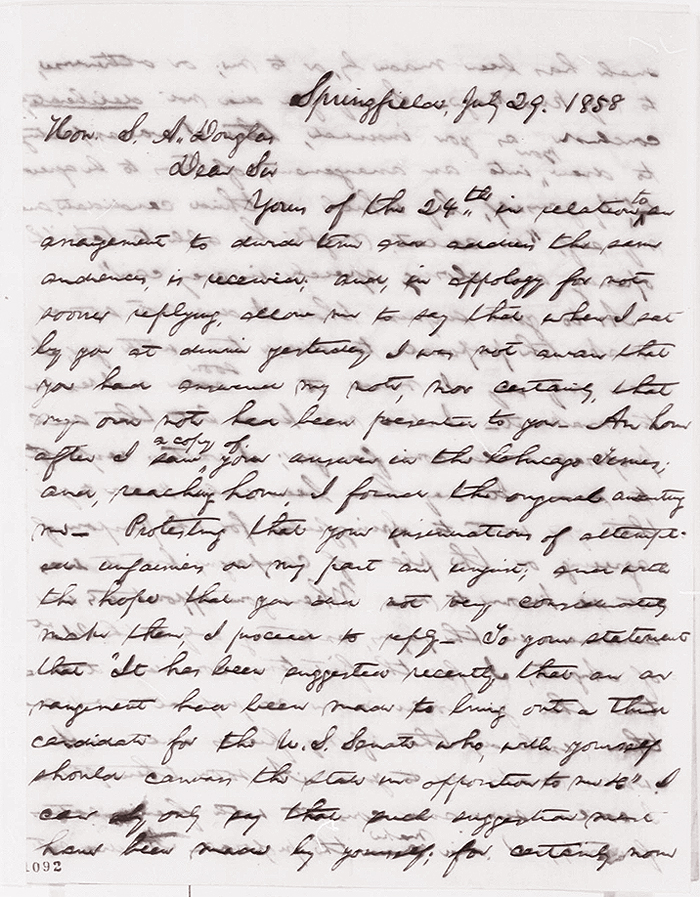 Springfield, July 29. 1858
Hon. S. A. Douglas
Dear Sir
Yours of the 24th in relation to an
arrangement to divide time and address the same
audiences, is received; and, in appology for not
sooner replying, allow me to say that when I sat
by you at dinner yesterday I was not aware that
you had answered my note, nor certainly, that
my own note had been presented to you. An hour
after I saw a copy of your answer in the Chicago Times;
and, reaching home, I found the original awaiting
me. Protesting that your insinuations of attempt-
ed unfairness on my part are unjust; and with
the hope that you did not very considerately
make them, I proceed to reply. To your statement
that "It has been suggested recently that an ar-
rangement had been made to bring out a third
candidate for the U. S. Senate who, with yourself
should canvass the state in opposition to me &c" I
can only say that such suggestion must
have been made by yourself; for certainly none
1092